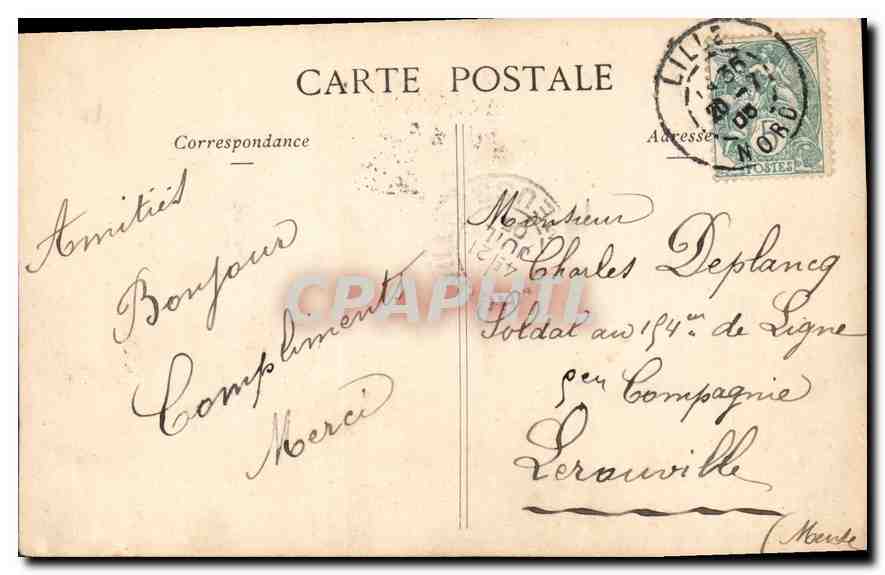 CARTE POSTALE
Correspondance
Adresse
LILLE
20 -7
05
NORD
5
POSTES
Amitiés
Bonjour
Compliments
Merci
Monsieur
Charles Deplancq
Soldat au 154em de Ligne
Compagnie
Lerouville
(Meuse
CPAPHIL